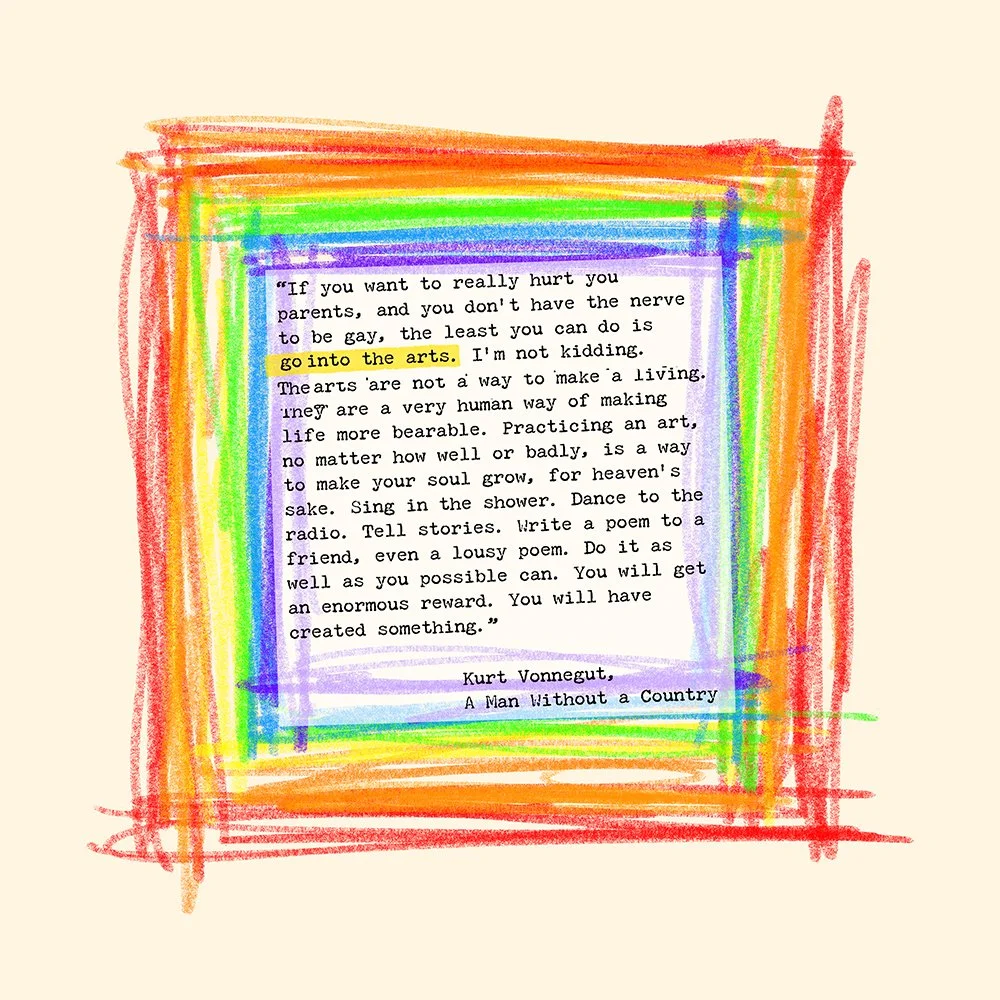 “If you want to really hurt you
parents, and you don't have the nerve
to be gay, the least you can do is
go into the arts. I'm not kidding.
The arts are not a way to make a living.
They are a very human way of making
life more bearable. Practicing an art,
no matter how well or badly, is a way
to make your soul grow, for heaven's
sake. Sing in the shower. Dance to the
radio. Tell stories. Write a poem to a
friend, even a lousy poem. Do it as
well as you possible can. You will get
an enormous reward. You will have
created something.”
Kurt Vonnegut,
A Man Without a Country